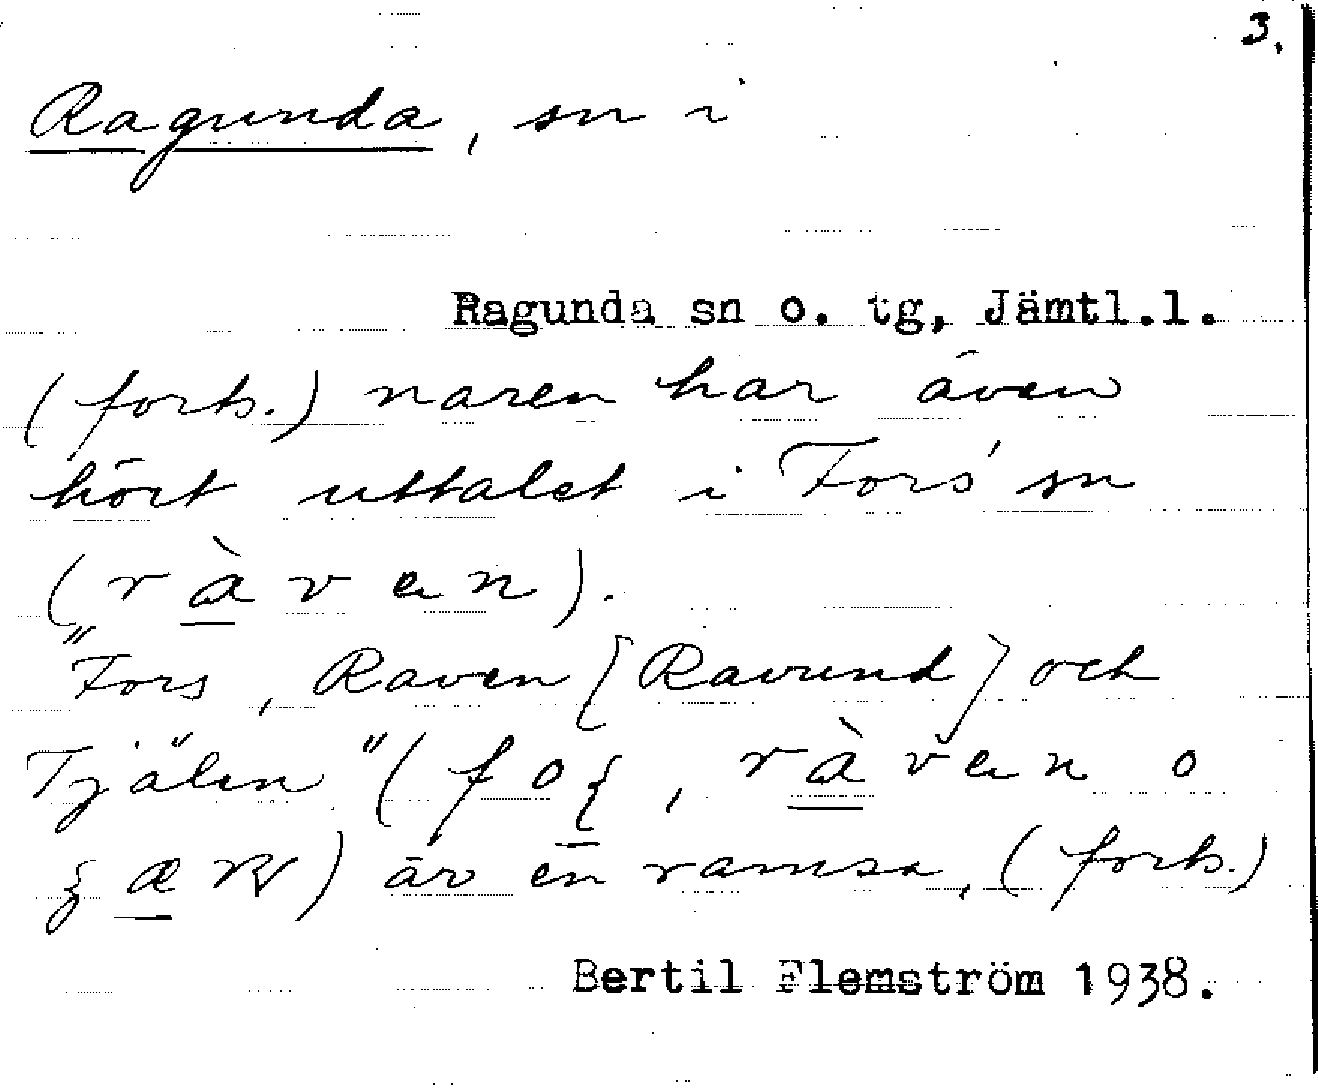 3.
Ragunda, sn i
Ragunda sn o. tg, Jämtl.l.
(forts.) naren har även
hört uttalet i Fors' sn
(ràvan).
"Fors, Raven [Ravund] och
Tjälen" (
är en ramsa, (forts.)
Bertil Flemström 1938.